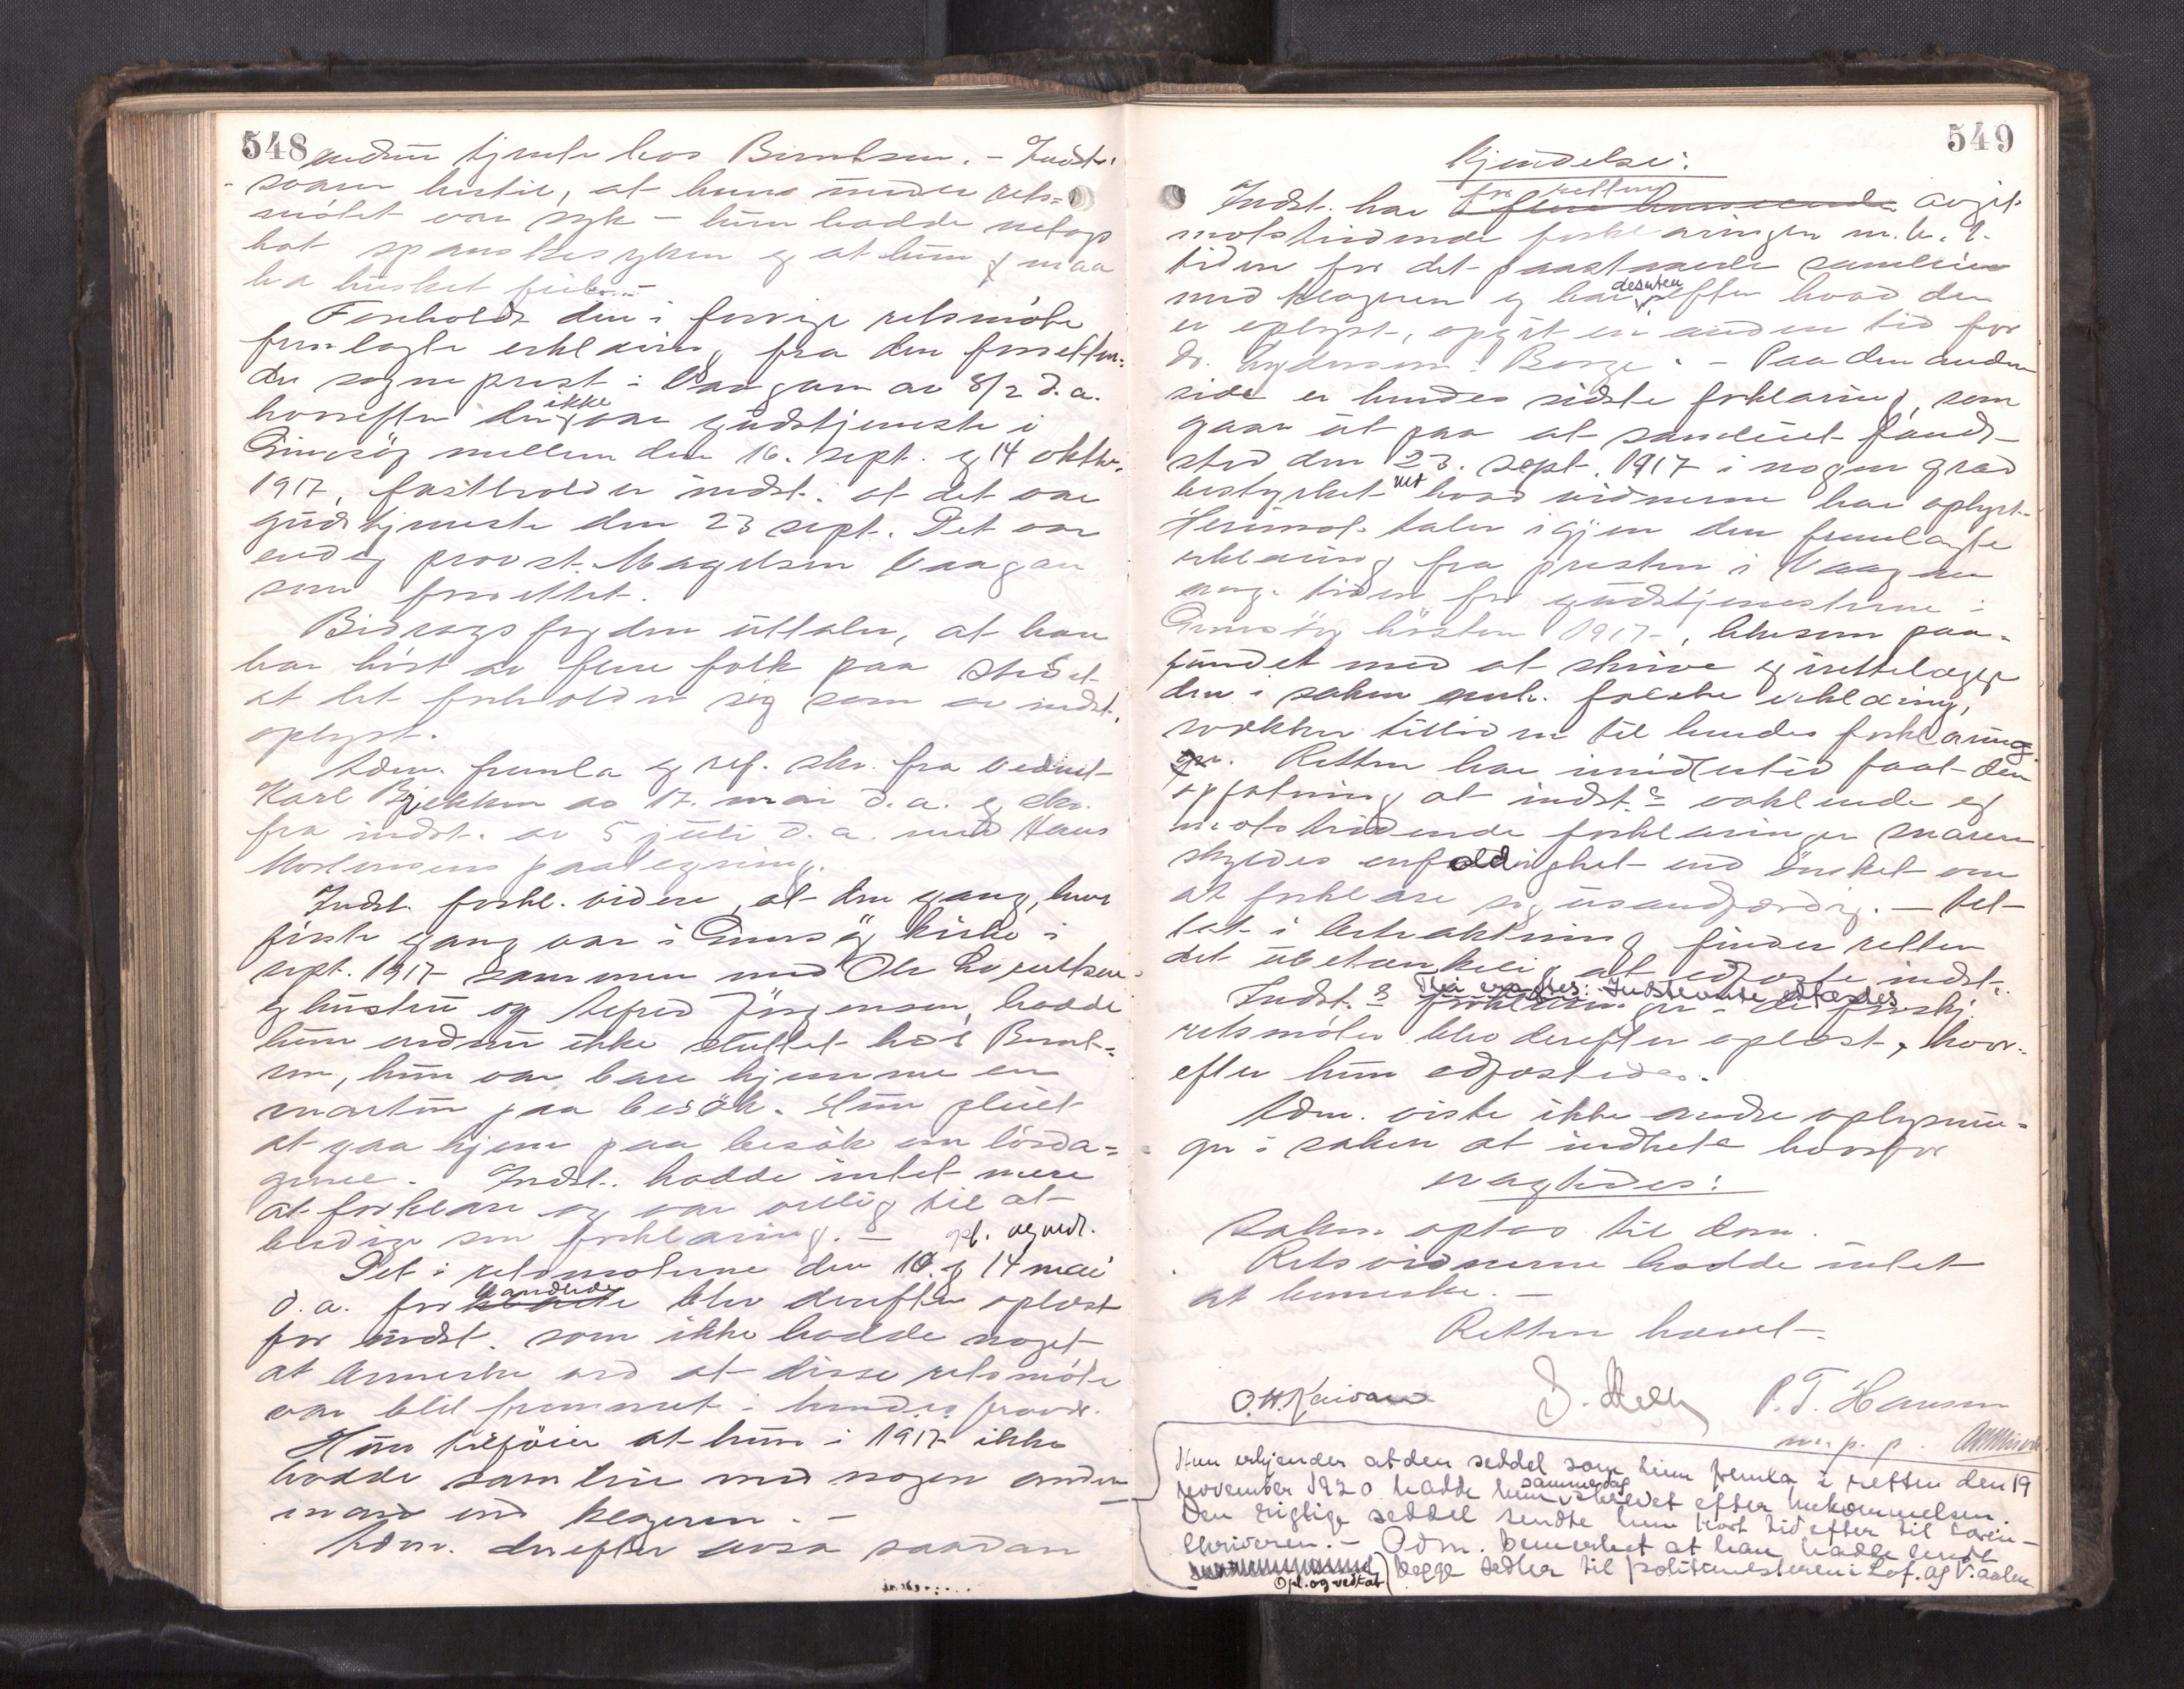 548
endnu tjente hos Berntsen. - Indst.
svarer hertil, at hun under rets=
mötet var syk - hun hadde netop
hat spanskesyken og at hun maa
ha husket feil.
Foreholdt den i forrige retsmöte
fremlagte erklæring fra den forretten-
de sogneprest i Vaagan av 8/2 d.a.
hvorefter der ikke var gudstjeneste i
Gimsöy mellem den 16. sept. og 14 oktbr.
1917, fastholder indst. at det var
gudstjeneste den 23 sept. Det var
endog provst Magelsen Vaagan
som forrettet.
Bidragsfogden uttaler, at han
har hört av flere folk paa stedet
at det forholder sig som av indst.
oplyst.
Adm. fremla og ref. skr. fra vidnet
Karl Bjekken av 17. mai d.a. og skr.
fra indst. av 5 juli d.a. med Hans
Mortensens paategning.
Indst. forkl. videre, at den gang, hun
förste gang var i Gimsöy kirke i
sept. 1917 sammen med Ole Lorentsen
og hustru og Alfred Jörgensen, hadde
hun endnu ikke sluttet hos Bernt=
sen, hun var bare hjemme en
snartur paa besök. Hun pleiet
at gaa hjem paa besök om lörda=
gene. Indst. hadde intet mere
at forklare og var villig til at
beedige sin forklaring. - opl. og vedt.
Det i retsmöterne den 10. og 14 mai
d.a. forhandlede blev derefter oplæst
for indst. som ikke hadde noget
at bemerke ved at disse retsmöte
var blit fremmet i hendes fravær.
Hun tilföier at hun i 1917 ikke
hadde samleie med nogen anden
mand end klageren. -
Adm. derefter avsa saadan
549
Kjendelse:
Indst. har for retten avgit
motstridende forklaringer m.h.t.
tiden for det paastaaede samleie
med klageren og har desuten efter hvad der
er oplyst, opgit en anden tid for
dr. Lydersen i Borge. - Paa den anden
side er hendes sidste forklaring, som
gaar ut paa at samleiet fandt
sted den 23. sept. 1917 i nogen grad
bestyrket ved hvad vidnerne har oplyst.
Herimot taler igjen den fremlagte
erklæring fra presten i Vaagan
ang. tiden for gudstjenesterne i
Gimsöy hösten 1917, likesom paa-
fundet med at skrive og irettelægge
den i saken anh. falske erklæring,
svækker tilliden til hendes forklaring
er. Retten har imidlertid faat den
opfatning at indst.s vaklende og
motstridende forklaringer snarere
skyldes enfoldighet end önsket om
at forklare sig usandfærdig. - Tat
i betraktning finder retten
det ubetænkelig at edfæste indst.
Thi eragtes: Indstevnte edfæstes
Indst.s forklaringer i de forskj.
retsmöter blev derefter oplæst, hvor-
efter hun edfæstedes.
Adm. viste ikke andre oplysnin=
ger i saken at indhente hvorfor
eragtedes:
Saken optas til dom.
Retsvidnerne hadde intet
at bemerke. -
Retten hævet.
P. T. Hansen
m. p. p.
Hun erkjender at den seddel som hun fremla i retten den 19
november 1920 hadde hun sammedag skrevet efter hukommelsen.
Den rigtige seddel sendte hun kort tid efter til soren-
skriveren. - Adm. bemerket at han hadde sendt
begge sedler til politimesteren i Lof. og V.aalen
Opl. og vedtat